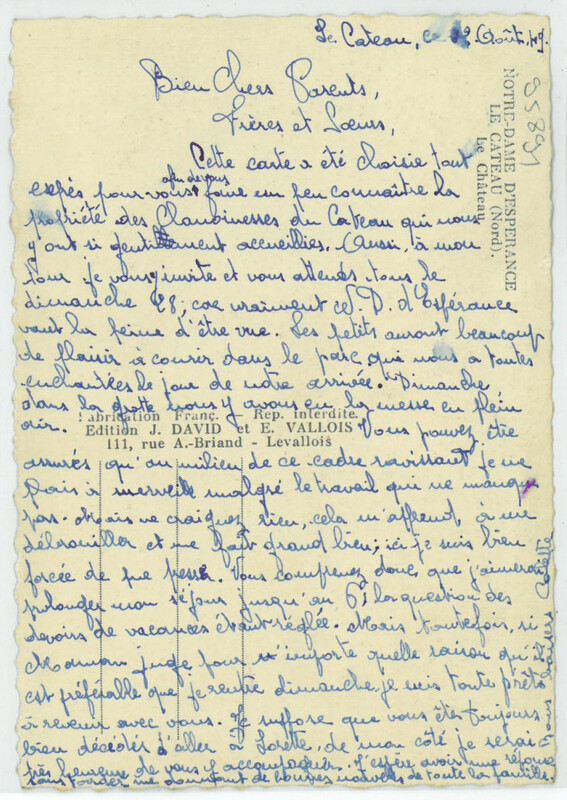 Le Cateau, ce 22 Août 49.
Bien chers Parents,
Frères et Sœurs,
Cette carte a été choisie tout
exprès pour vous afin de vous faire un peu connaître la
propriété des Chanoinesses du Cateau qui nous
y ont si gentiment accueillies. Aussi, à mon
tour je vous y invite et vous attends tous le
dimanche 28; car vraiment N. D. d'Espérance
vaut la peine d'être vue. Les petits auront beaucoup
de plaisir à courir dans le parc qui nous a toutes
enchantées le jour de notre arrivée. Dimanche
dans la grotte nous y avons eu la messe en plein
air. Vous pouvez être
assurés qu'au milieu de ce cadre ravissant je me
plais à merveille malgré le travail qui ne manque
pas. Mais ne craignez rien, cela m'apprend à me
débrouiller et me fait grand bien; ici je suis bien
forcée de me presser. Vous comprenez donc que j'aimerais
prolonger mon séjour jusqu'au 6; la question des
devoirs de vacances étant réglée. Mais toutefois, si
Maman juge pour n'importe quelle raison qu'il
est préférable que je rentre dimanche, je suis toute prête
à revenir avec vous. Je suppose que vous êtes toujours
bien décidés d'aller à Lorette, de mon côté je serai
très heureuse de vous y accompagner. J'espère avoir une réponse
sans tarder me donnant de bonnes nouvelles de toute la famille.
baisers Colette
NOTRE-DAME D'ESPERANCE
LE CATEAU (Nord).
Le Château
95891
Fabrication Franç. - Rep. interdite.
Edition J. DAVID et E. VALLOIS
111, rue A.-Briand - Levallois